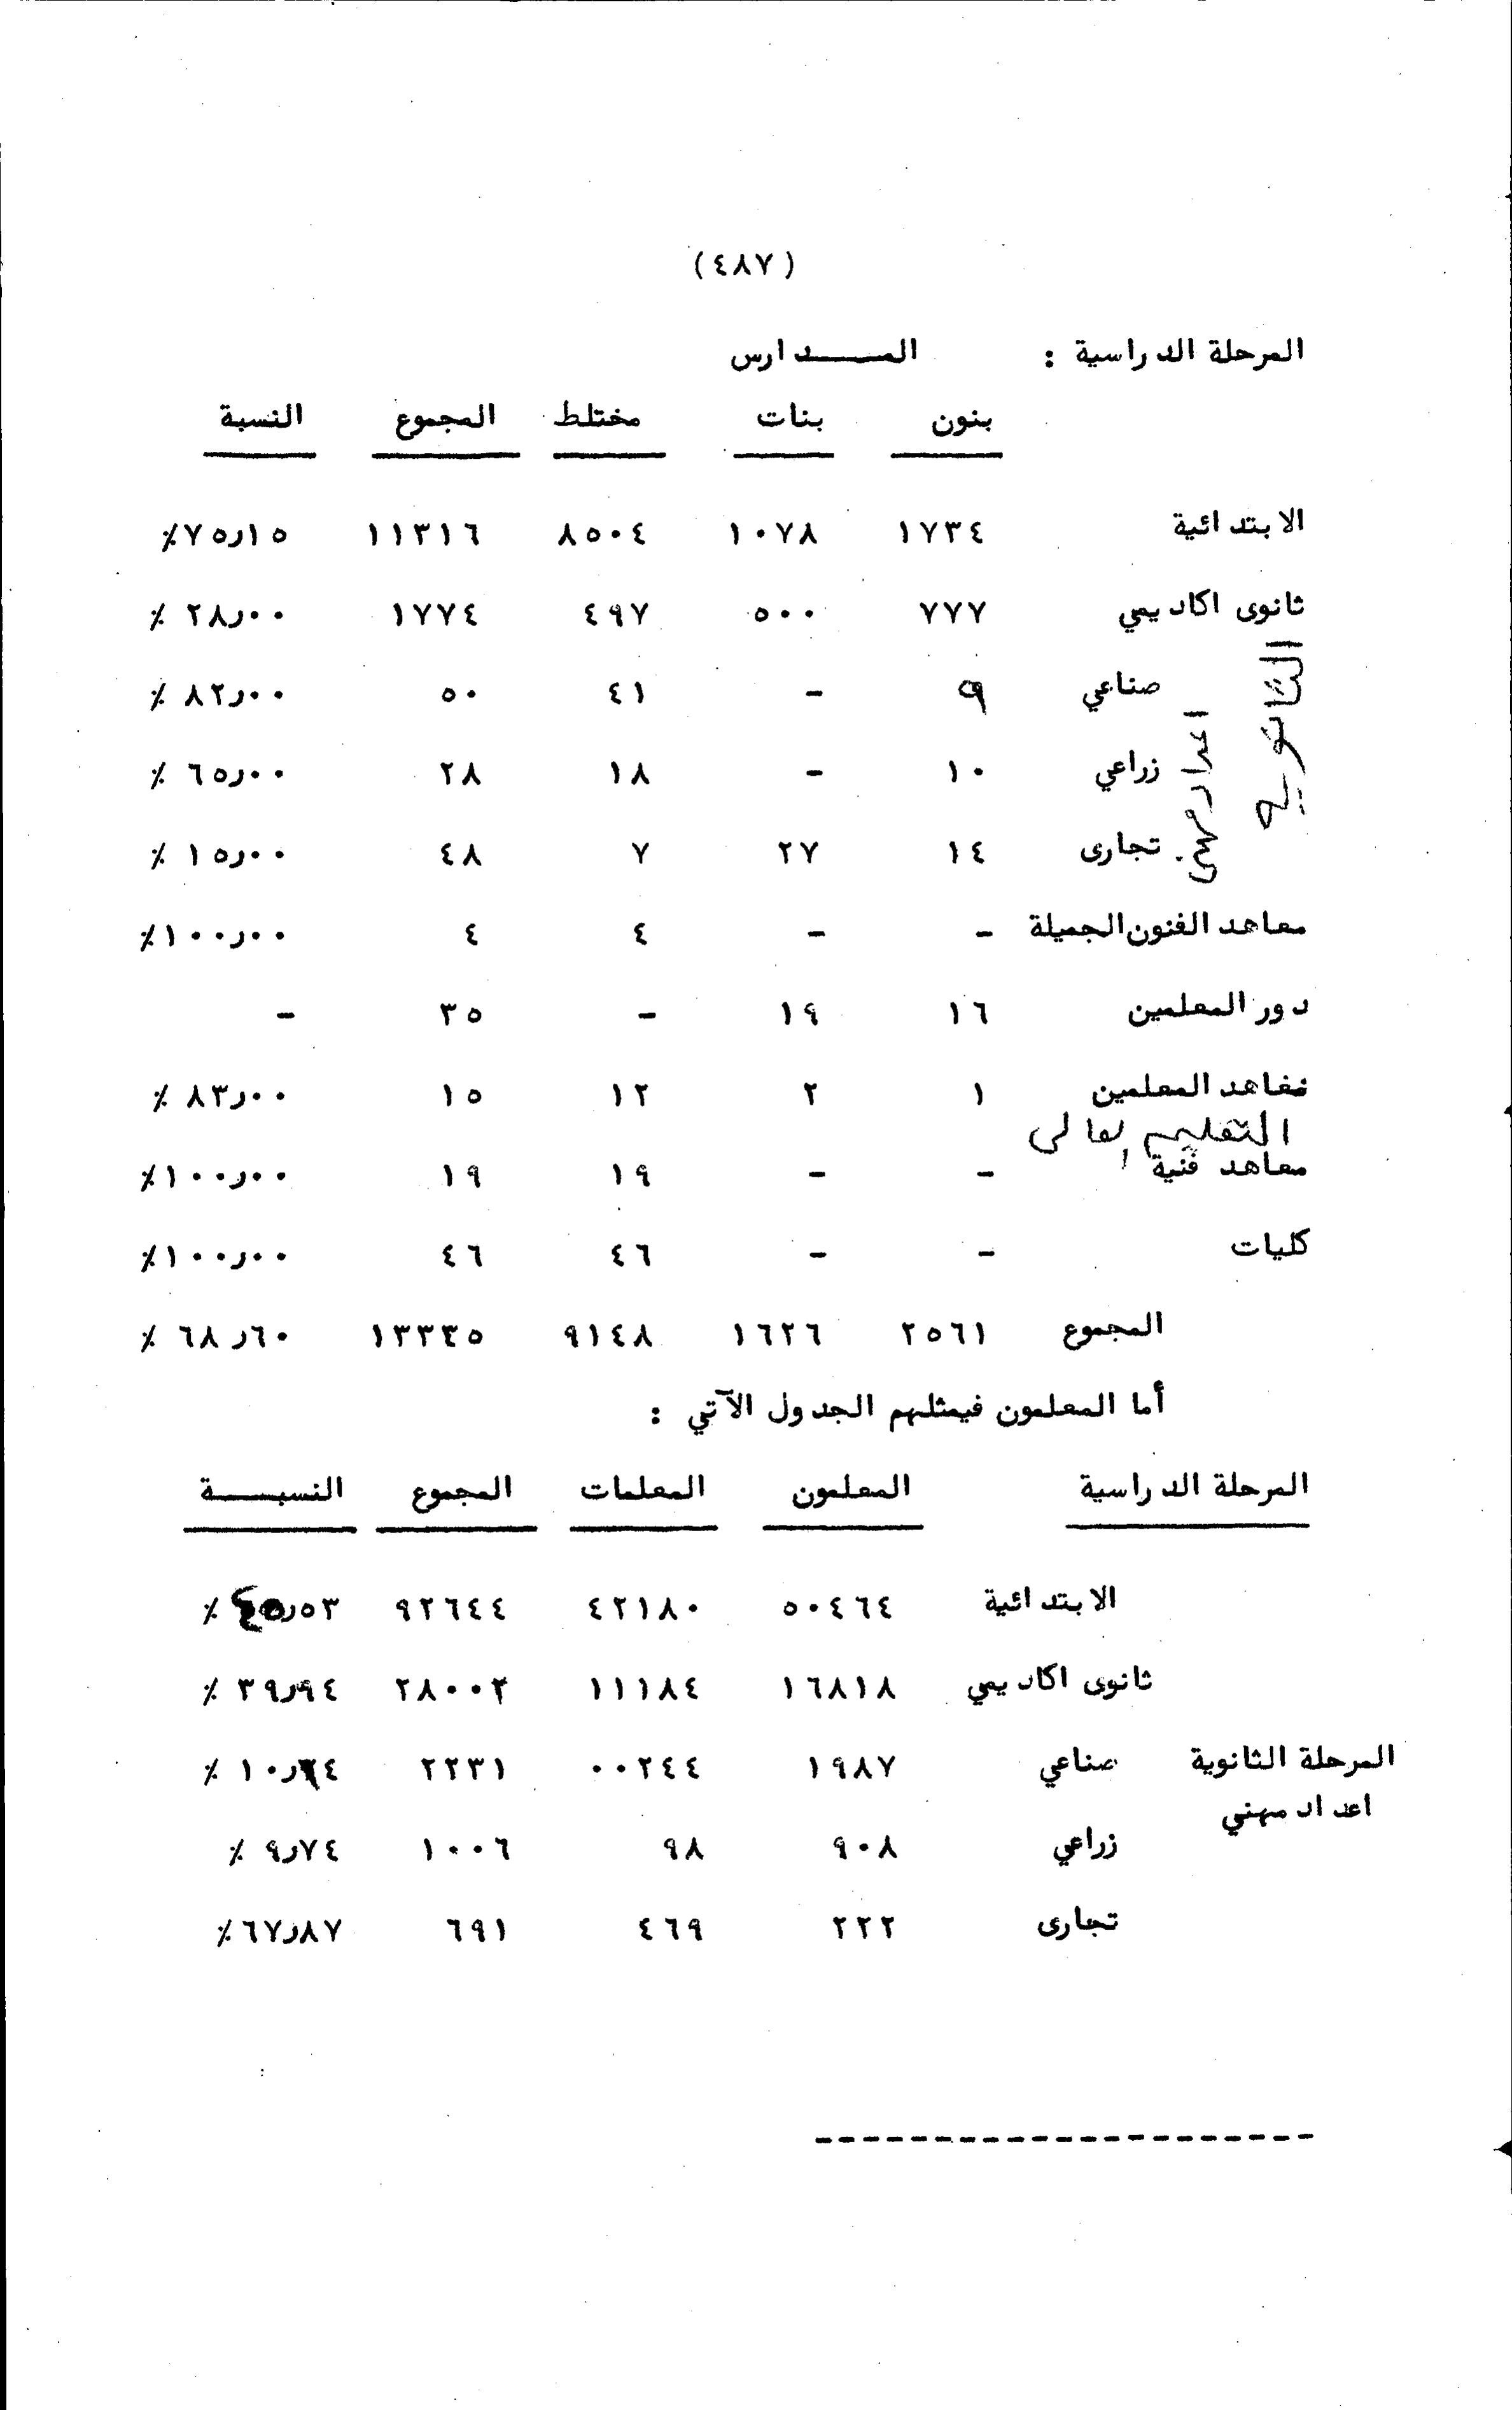 (٤٨٧)
المرحلة الدراسية : المـــدارس
بنون بنات مختلط المجموع النسبة
الابتدائية ١٧٣٤ ١٠٧٨ ٨٥٠٤ ١١٣١٦ ٧٥ر١٥٪
ثانوى اكاديمي ٧٧٧ ٥٠٠ ٤٩٧ ١٧٧٤ ٢٨ر٠٠ ٪
الثانوية
اعداد مهني
صناعي ٩ - ٤١ ٥٠ ٨٢ر٠٠ ٪
زراعي ١٠ - ١٨ ٢٨ ٦٥ر٠٠ ٪
تجارى ١٤ ٢٧ ٧ ٤٨ ١٥ر٠٠ ٪
معاهد الفنون الجميلة - - ٤ ٤ ١٠٠ر٠٠٪
دور المعلمين ١٦ ١٩ - ٣٥ -
معاهد المعلمين ١ ٢ ١٢ ١٥ ٨٣ر٠٠ ٪
التعليم العالي
معاهد فنية - - ١٩ ١٩ ١٠٠ر٠٠٪
كليات - - ٤٦ ٤٦ ١٠٠ر٠٠٪
المجموع ٢٥٦١ ١٦٢٦ ٩١٤٨ ١٣٣٣٥ ٦٨ر٦٠ ٪
أما المعلمون فيمثلهم الجدول الآتي :
المرحلة الدراسية المعلمون المعلمات المجموع النسبـــة
الابتدائية ٥٠٤٦٤ ٤٢١٨٠ ٩٢٦٤٤ ٤٥ر٥٣ ٪
ثانوى اكاديمي ١٦٨١٨ ١١١٨٤ ٢٨٠٠٢ ٣٩ر٩٤ ٪
المرحلة الثانوية صناعي ١٩٨٧ ٠٠٢٤٤ ٢٢٣١ ٪
اعداد مهني
زراعي ٩٠٨ ٩٨ ١٠٠٦ ٩ر٧٤ ٪
تجارى ٢٢٢ ٤٦٩ ٦٩١ ٦٧ر٨٧٪